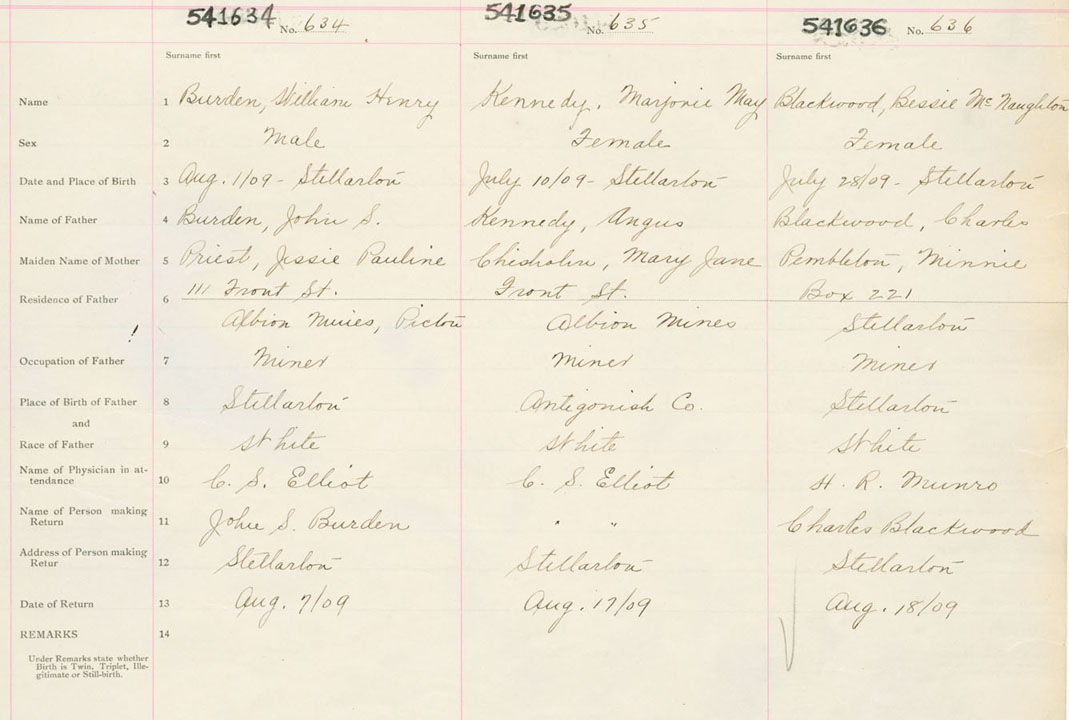 541634 No. 634 541635 No. 635 541636 No. 636
Surname first Surname first Surname first
Name 1 Burden, William Henry Kennedy, Marjorie May Blackwood, Bessie McNaughton
Sex 2 Male Female Female
Date and Place of Birth 3 Aug. 1/09 - Stellarton July 10/09 - Stellarton July 28/09 - Stellarton
Name of Father 4 Burden, John S. Kennedy, Angus Blackwood, Charles
Maiden Name of Mother 5 Priest, Jessie Pauline Chisholm, Mary Jane Pembleton, Minnie
Residence of Father 6 111 Front St. Front St. Box 221
! Albion Mines, Pictou Albion Mines Stellarton
Occupation of Father 7 Miner Miner Miner
Place of Birth of Father 8 Stellarton Antigonish Co. Stellarton
and
Race of Father 9 White White White
Name of Physician in at-
tendance 10 C. S. Elliot C. S. Elliot H. R. Munro
Name of Person making
Return 11 John S. Burden " " Charles Blackwood
Address of Person making
Retur 12 Stellarton Stellarton Stellarton
Date of Return 13 Aug. 7/09 Aug. 17/09 Aug. 18/09
REMARKS 14
Under Remarks state whether
Birth is Twin, Triplet, Ille-
gitimate or Still-birth.